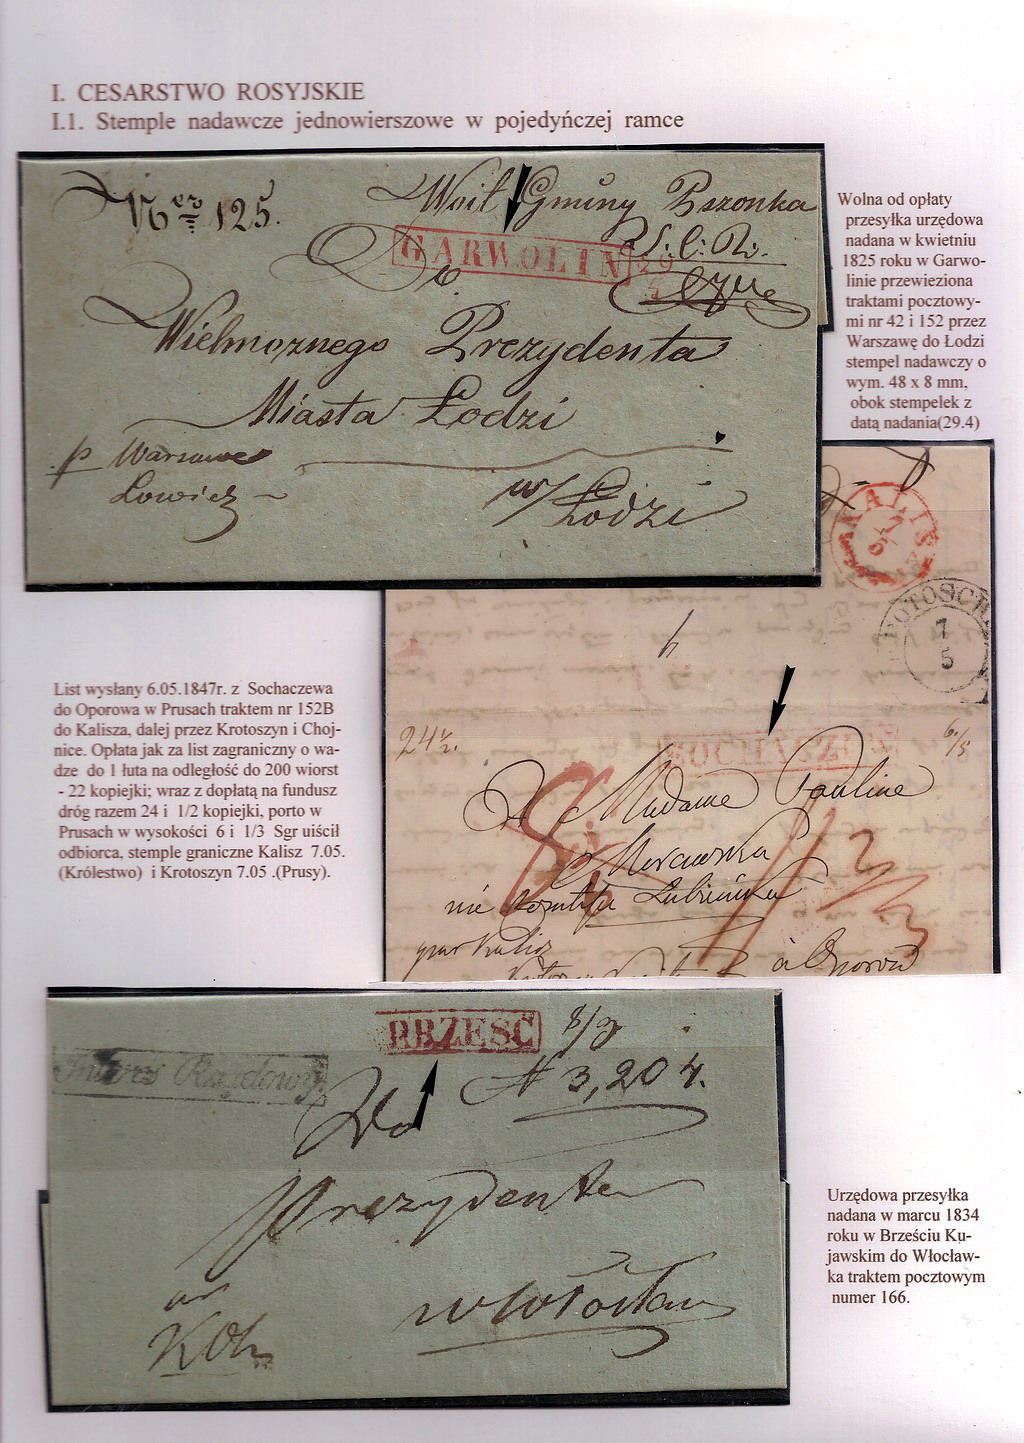 I. CESARSTWO ROSYJSKIE
I.1. Stemple nadawcze jednowierszowe w pojedyńczej ramce
Woit Gminy Pszonka
Ner 125.
GARWOLIN 29
4
Do
Wielmoznego Prezydenta
Miasta Łodzi
p Warszawe
Lowicz
w/ Łodzi
Wolna od opłaty
przesyłka urzędowa
nadana w kwietniu
1825 roku w Garwo-
linie przewieziona
traktami pocztowy-
mi nr 42 i 152 przez
Warszawę do Łodzi
stempel nadawczy o
wym. 48 x 8 mm,
obok stempelek z
datą nadania(29.4)
KALISZ
7
5
KROTOSCHIN
7
5
24 1/2.
SOCHACZEW
6/5
A Madame Pauline
née Lubinska
par Kalisz
à Oporow
List wysłany 6.05.1847r. z Sochaczewa
do Oporowa w Prusach traktem nr 152B
do Kalisza, dalej przez Krotoszyn i Choj-
nice. Opłata jak za list zagraniczny o wa-
dze do 1 łuta na odległość do 200 wiorst
- 22 kopiejki; wraz z dopłatą na fundusz
dróg razem 24 i 1/2 kopiejki, porto w
Prusach w wysokości 6 i 1/3 Sgr uiścił
odbiorca, stemple graniczne Kalisz 7.05.
(Królestwo) i Krotoszyn 7.05 .(Prusy).
BRZEŚĆ 8/3
Interes Rządowy
N 3,204.
Do
Prezydenta
w Włocław
Urzędowa przesyłka
nadana w marcu 1834
roku w Brześciu Ku-
jawskim do Włocław-
ka traktem pocztowym
numer 166.